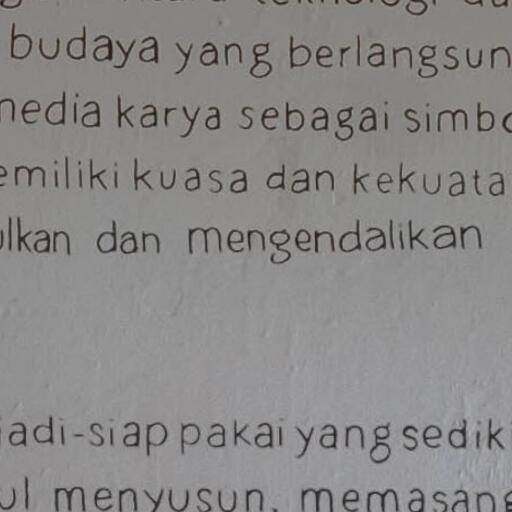 budaya yang berlangsun
media karya sebagai simbo
emiliki kuasa dan kekuata
ulkan dan mengendalikan
jadi-siap pakai yang sedik
ul menyusun, memasang